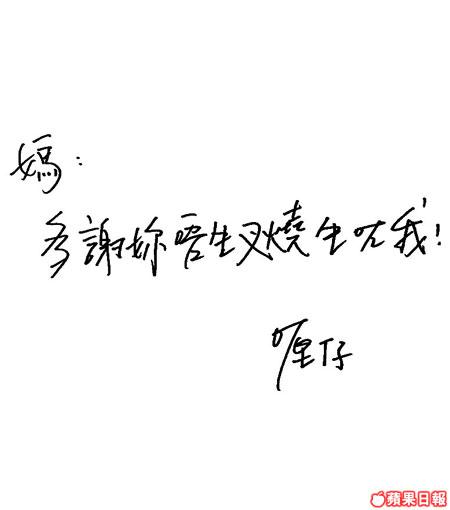 媽：
多謝妳唔生叉燒生咗我！
喱仔
蘋果日報